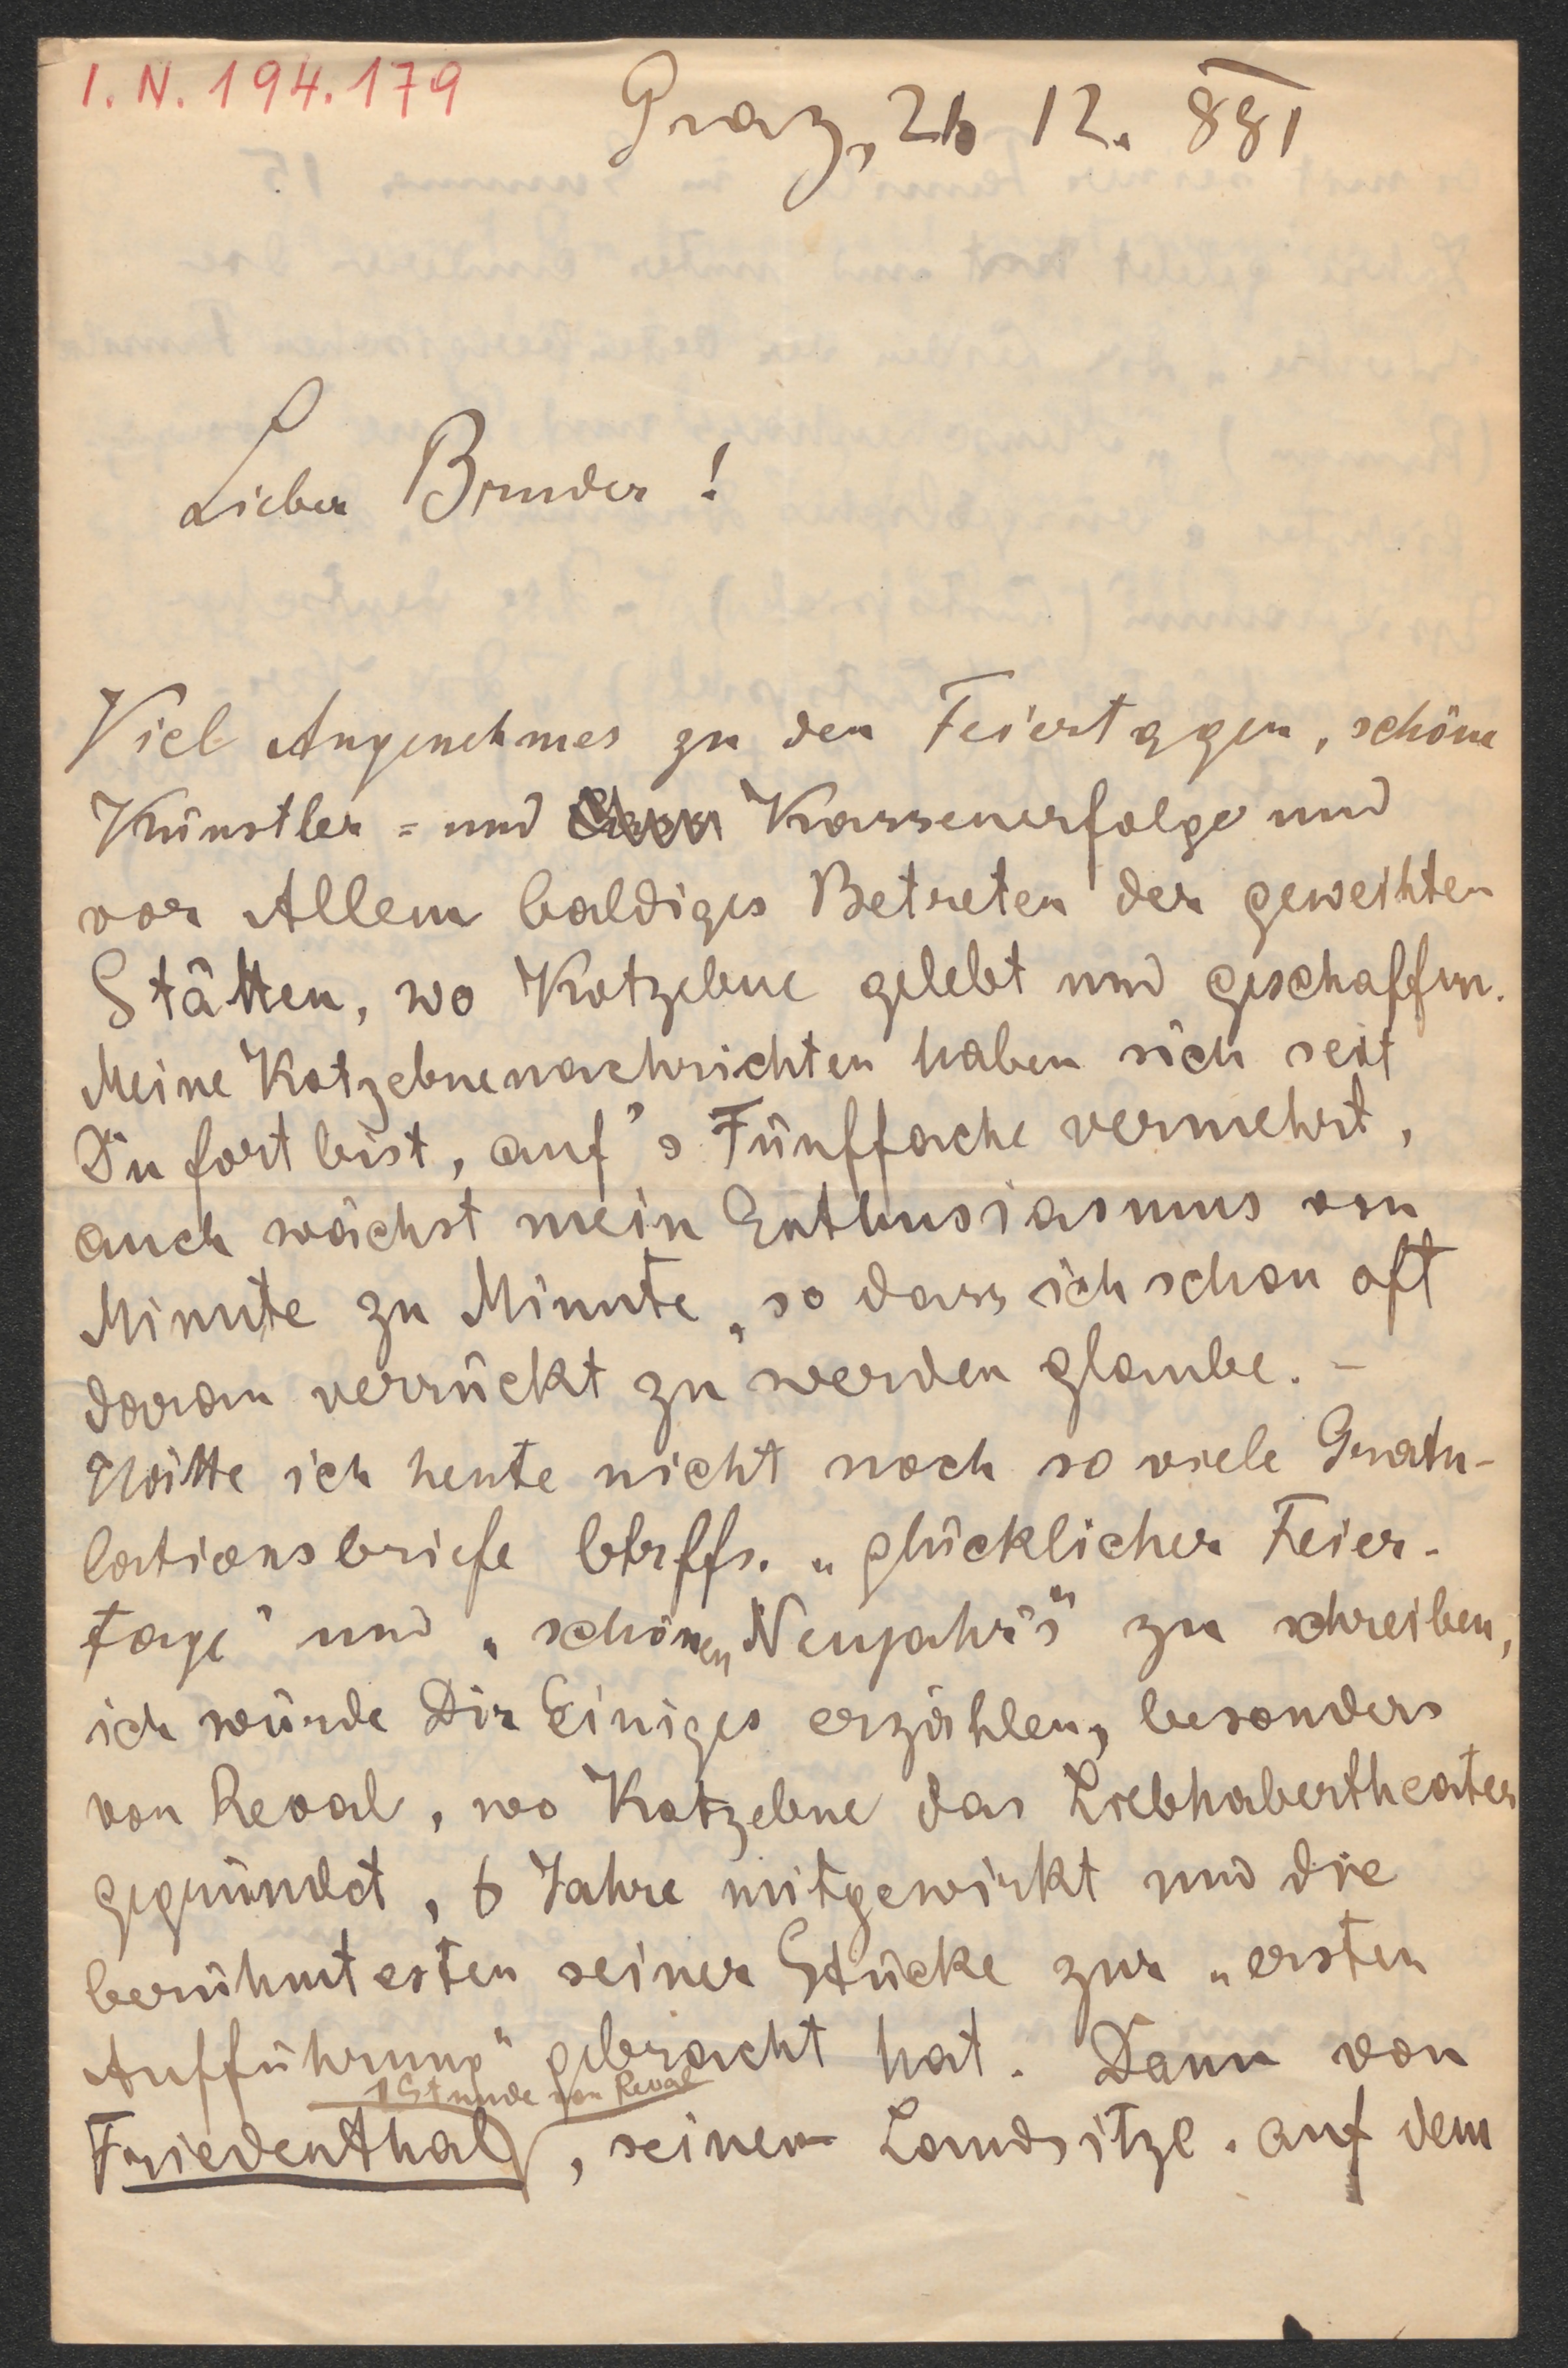 I. N. 194.179
Graz, 21 12. 881
Lieber Bruder !
Viel Angenehmes zu den Feiertagen, schöne
Künstler = und Kassenerfolge und
vor Allem baldiges Betreten der geweihten
Stätten, wo Kotzebue gelebt und geschaffen.
Meine Kotzebuenachrichten haben sich seit
Du fort bist, auf's Fünffache vermehrt,
auch wächst mein Enthusiasmus von
Minute zu Minute, so dass ich schon oft
daran verrückt zu werden glaube. –
Hätte ich heute nicht noch so viele Gratu-
lationsbriefe btrffs. „glücklicher Feier-
tage" und „schönen Neujahr's" zu schreiben,
ich würde Dir Einiges erzählen, besonders
von Reval, wo Kotzebue das Liebhabertheater
gegründet, 6 Jahre mitgewirkt und die
berühmtesten seiner Stücke zur „ersten
Aufführung" gebracht hat. Dann von
1 Stunde von Reval
Friedenthal, seinem Landsitze. auf dem